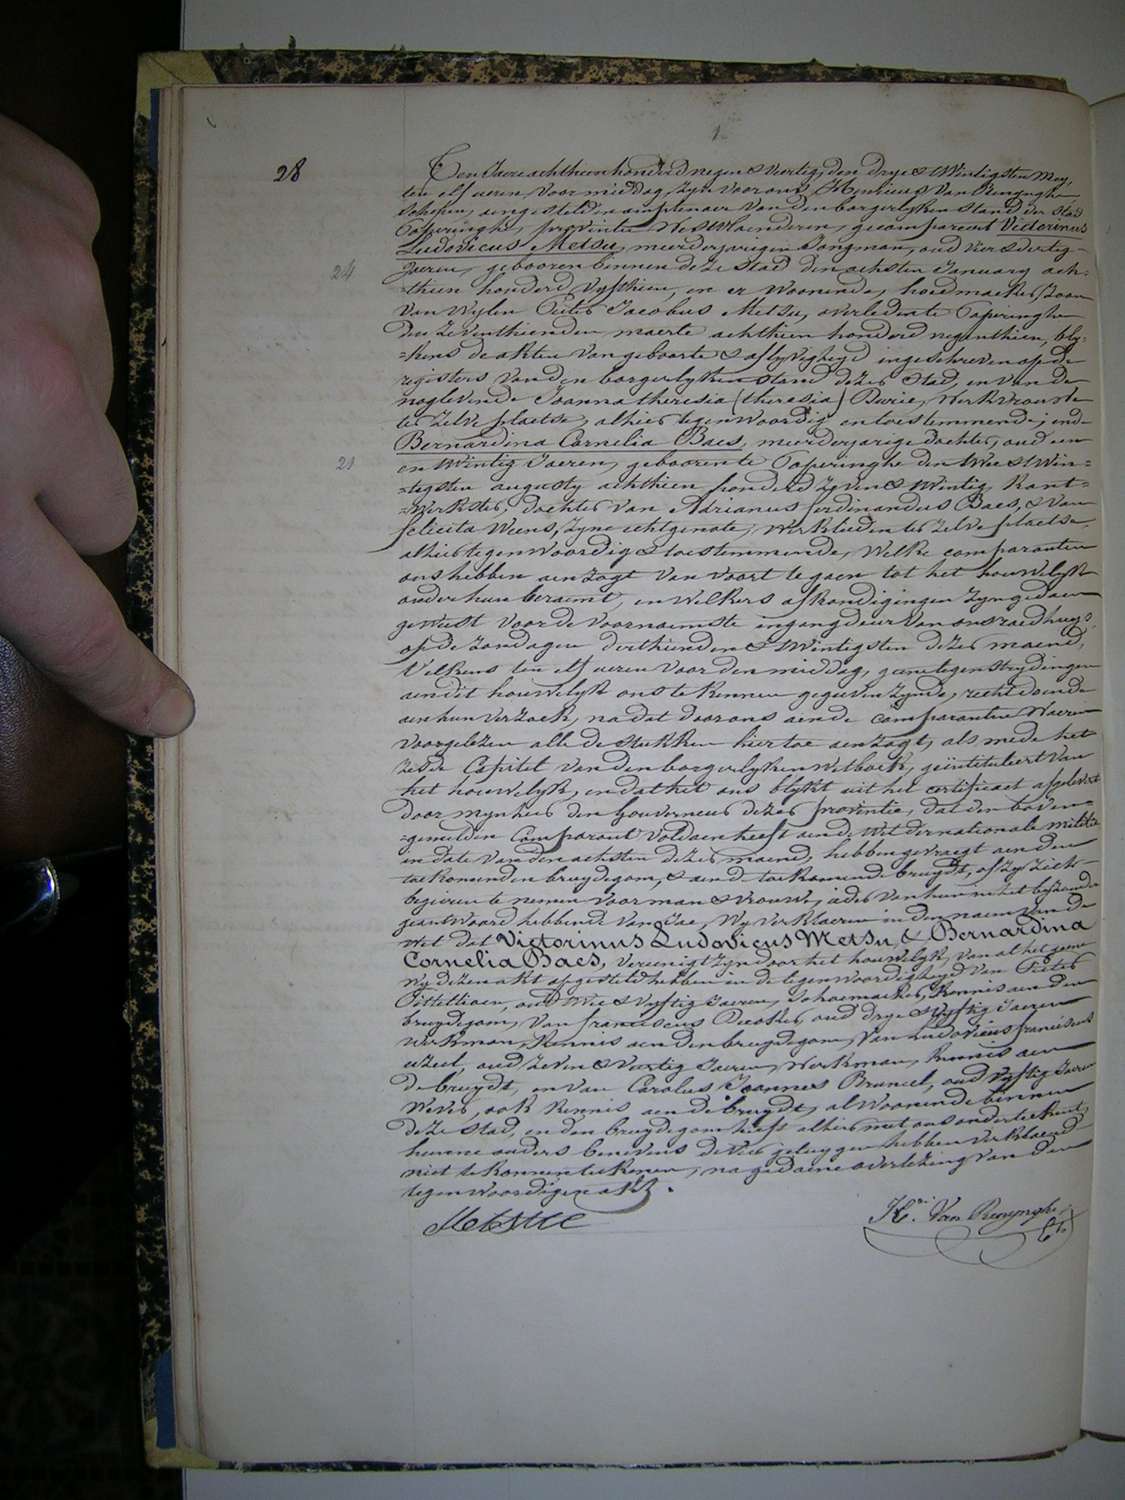 1
28
Ten Jaere achthien honderd negen & veertig, den drye & twintigsten Mey,
ten elf ueren voormiddag, zyn voor ons Henricus Van Renynghe
Schepen, aengestelden amptenaer van den borgerlyken stand der stad
Poperinghe, provintie Westvlaenderen, gecompareert Victorinus
Ludovicus Metsu, meerderjarigen Jongman, oud vier & dertig
24
Jaeren, gebooren binnen deze stad den achsten January ach=
=thien honderd vyfthien, en er woonende, hoedmaeker, zoon
van wylen Pieter Jacobus Metsu, overleden te Poperinghe
den zeventhienden maerte achthien honderd negenthien, bly=
=kens de akten van geboorte & aflyvigheyd ingeschreven op de
registers van den borgerlyken stand dezer stad, en van de
noglevende Joanna theresia (theresia) Purie, werkvrouw
ter zelve plaetse, alhier tegenwoordig en toestemmende; ende
Bernardina Cornelia Baes, meerderjarige dochter, oud een
21
en twintig Jaeren, gebooren te Poperinghe den twee & twin=
=tigsten augusty achthien honderd zeven & twintig, kant=
=werkster, dochter van Adrianus ferdinandus Baes, & van
felicita Weens, zyne echtgenote, werklieden ter zelve plaetse
alhier tegenwoordig & toestemmende, Welke comparanten
ons hebben aenzogt van voort te gaen tot het houwelyk
onder hun beraemt, en welkers afkondigingen zyn gedaen
geweest voor de voornaemste ingangdeur van ons raedhuys,
op de zondagen derthienden & twintigsten dezer maend,
telkens ten elf ueren voor den middag, geene tegenstrydingen
aen dit houwelyk ons te kennen gegeeven zynde, recht doende
aen hun verzoek, na dat door ons aen de comparanten waeren
voorgelezen alle de stukken hiertoe aenzogt, als mede het
zesde Capitel van den borgerlyken wetboek, geïntituleert van
het houwelyk, en dat het ons blykt uit het certificaet afgelevert
door mynheer den Gouverneur dezer provintie, dat den boven=
=gemelden Comparant voldaen heeft aen de Wet der nationale militie
in date van den achsten dezer maend, hebben gevraegt aen den
toekomenden bruydegom, & aen de toekomende bruydt, of zy zich
begeeren te nemen voor man & vrouw, ider van hun in het byzonder
geantwoord hebbende van Jae, Wy verklaeren in den naem van de
Wet dat Victorinus Ludovicus Metsu, & Bernardina
Cornelia Baes, vereenigt zyn door het houwelyk, van al het geene
wy dezen akt opgesteld hebben in de tegenwoordigheyd van Pieter
Pittellioen, oud twee & vyftig Jaeren, Schoenmaeker, kennis aen den
bruydegom, van franciscus Decoker, oud drye & vyftig Jaeren
werkman, kennis aen den bruydegom, van Ludovicus franciscus
oud zeven & veertig Jaeren, Werkman, kennis aen
de bruydt, en van Carolus Joannes Bruneel, oud vyftig Jaeren
wever, ook kennis aen de bruydt, al woonende binnen
deze stad, en den bruydegom heeft alhier met ons onderteekent,
hunne ouders benevens de vier getuygen hebben verklaerd
niet te konnen teekenen, na gedaene overlezing van den
tegenwoordigen akt.
Metsu
H.ri Van Renynghe